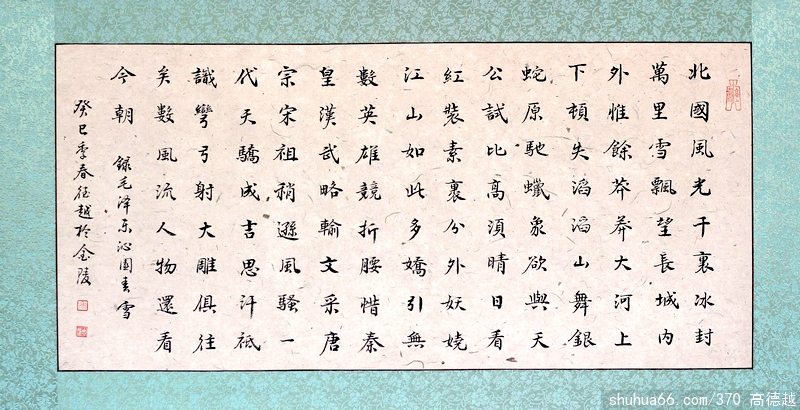 北國風光千裏冰封
萬里雪飄望長城内
外惟餘莽莽大河上
下頓失滔滔山舞銀
蛇原馳蠟象欲與天
公試比高須晴日看
紅裝素裹分外妖嬈
江山如此多嬌引無
數英雄競折腰惜秦
皇漢武略輸文采唐
宗宋祖稍遜風騷一
代天驕成吉思汗祗
識彎弓射大雕俱往
矣數風流人物還看
今朝 錄毛澤东沁園春雪
癸巳季春德越於金陵
shuhua66.com/370 高德越